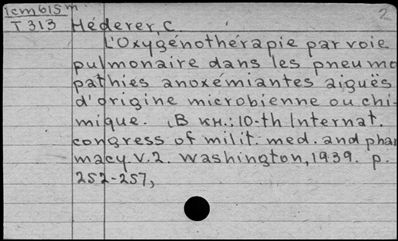 icmb15m 2
T313 Héderer, C
L'Oxygénothérapie par voie
pulmonaire dans les pneumo
pathies anoxémiantes aiguës
d'origine microbienne ou chi-
mique. (В кн.: 10-th Internat.
congress of milit. med. and phar
macy. V.2. Washington, 1939. p.
252-257,